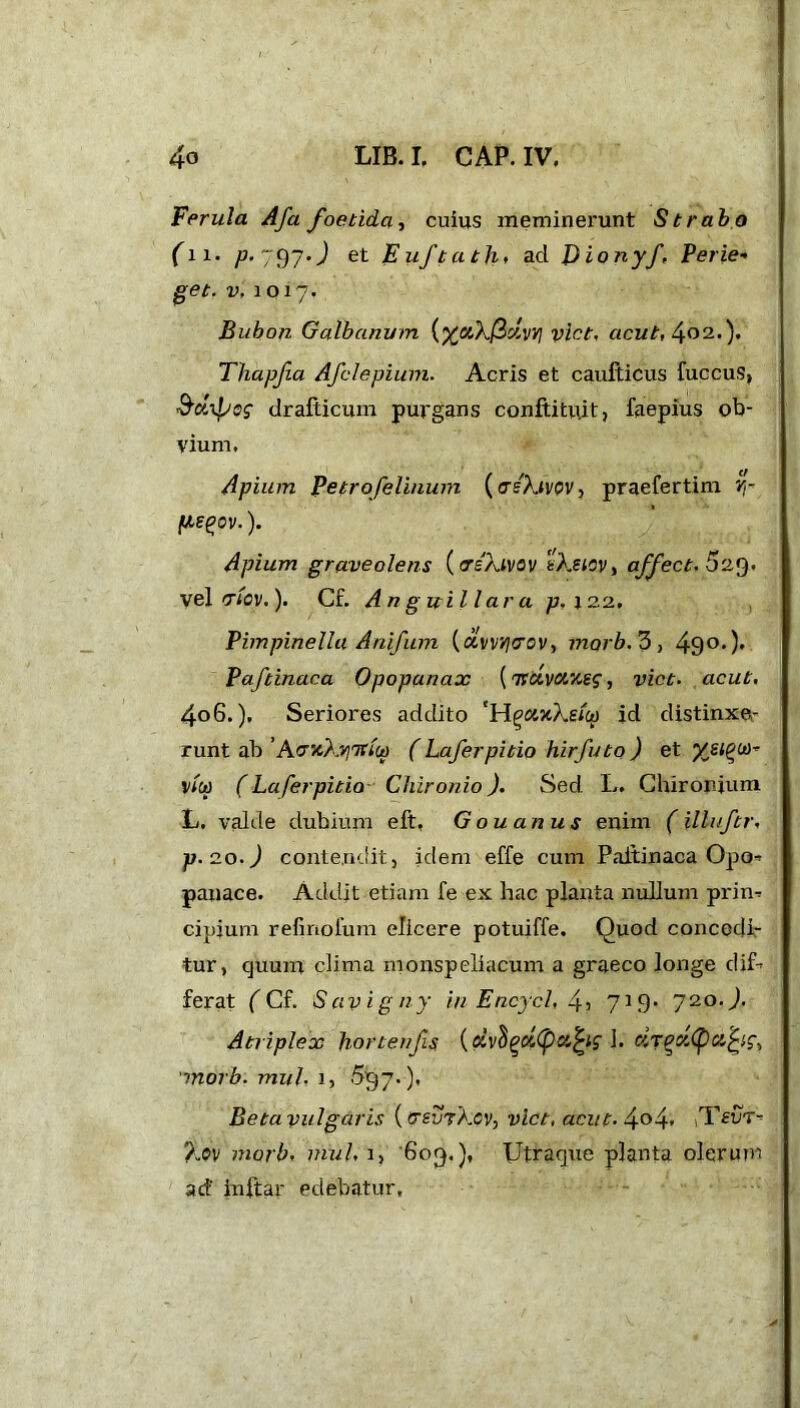 40 LIB. I. CAP. IV.
Ferula Aſa foetida, cuius meminerunt Strabo
(11. p. 797.) et Euſtath. ad Dionyſ. Perie-
get. v. 1017.
Bubon Galbanum (χαλβάνη vict. acut. 402.).
Thapſia Aſclepium. Acris et cauſticus ſuccus,
θάψος draſticum purgans conſtituit, ſaepius ob-
vium.
Apium Petroſelinum (σέλινον, praeſertim ἥ-
μερον.).
Apium graveolens (σέλινον ἕλειον, affect. 529.
vel σίον.). Cf. Anguillara p. 122.
Pimpinella Aniſum (ἄννησον, morb. 3, 490.).
Paſtinaca Opopanax (πάνακες, vict. acut.
406.). Seriores addito Ἡρακλείῳ id distinxe-
runt ab Ἀσκληπίῳ (Laſerpitio hirſuto) et χειρω-
νίῳ (Laſerpitio Chironio). Sed L. Chironium
L. valde dubium eſt. Gouanus enim (illuſtr.
p. 20.) contendit, idem eſſe cum Paſtinaca Opo-
panace. Addit etiam ſe ex hac planta nullum prin-
cipium reſinoſum elicere potuiſſe. Quod concedi-
tur, quum clima monspeliacum a graeco longe dif-
ferat (Cf. Savigny in Encycl. 4, 719. 720.).
Atriplex hortenſis (ἀνδράφαξις l. ἀτράφαξις,
morb. mul. 1, 597.).
Beta vulgaris (σεῦτλον, vict. acut. 404. Τεῦτ-
λον morb. mul. 1, 609.). Utraque planta olerum
ad inſtar edebatur.